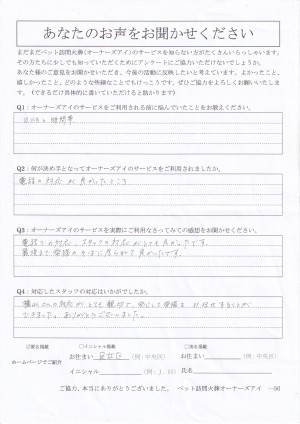 あなたのお声をお聞かせください
まだまだペット訪問火葬(オーナーズアイ)のサービスを知らない方がたくさんいらっしゃいます。
その方たちに少しでも知っていただくためにアンケートにご協力いただけないでしょうか。
あなた様のご意見をお聞かせいただき、今後の活動に反映したいと考えています。よかったこと、
嬉しかったこと、どのような些細なことでもけっこうです。ぜひご協力をよろしくお願いいたしま
す。(できるだけ具体的に書いていただけると助かります)
Q1：オーナーズアイのサービスをご利用される前に悩んでいたことをお教えください。
時間帯
Q2：何が決め手となってオーナーズアイのサービスをご利用されましたか。
電話の対応が良かったところ
Q3：オーナーズアイのサービスを実際にご利用なさってみての感想をお聞かせください。
電話での対応、スタッフの対応がとても良かったです。
最後まで愛猫のそばに居られて良かったです。
Q4：対応したスタッフの対応はいかがでしたか。
さんの対応がとても親切で、安心して愛猫をお任せすることが
できました。ありがとうございました。
ホームページでご紹介
☑匿名掲載
□イニシャル掲載
□実名掲載
お住まい
(例：中央区)
お住まい
(例：中央区)
イニシャル
(例：J．H)
氏名
ご協力、本当にありがとうございました。 ペット訪問火葬オーナーズアイ